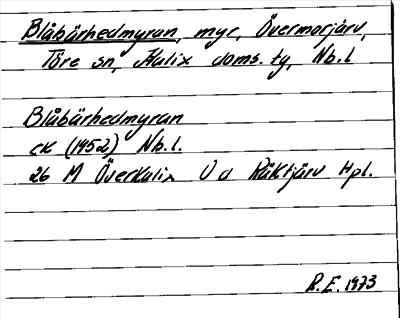 Blåbärhedmyran, myr, Övermorjärv,
Töre sn, Kalix doms. tg, Nb.l
Blåbärhedmyran
ek (1952) Nb.l.
26 M Överkalix V d Räktjärv Hpl.
R.E. 1973